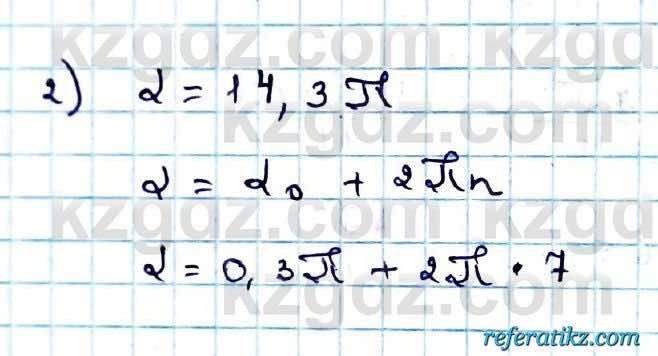 kzgdz.com kzgdz.com
2) α = 14,3π
kzgdz.com
α = α₀ + 2πn
kzgdz.com kzgdz.com
α = 0,3π + 2π · 7
kzgdz.com
referatikz.com